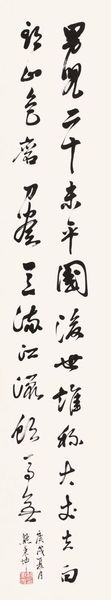 男兒二十未平國後世誰稱大丈夫白
頭山石磨刀盡豆滿江飲馬無
庚戌夏月